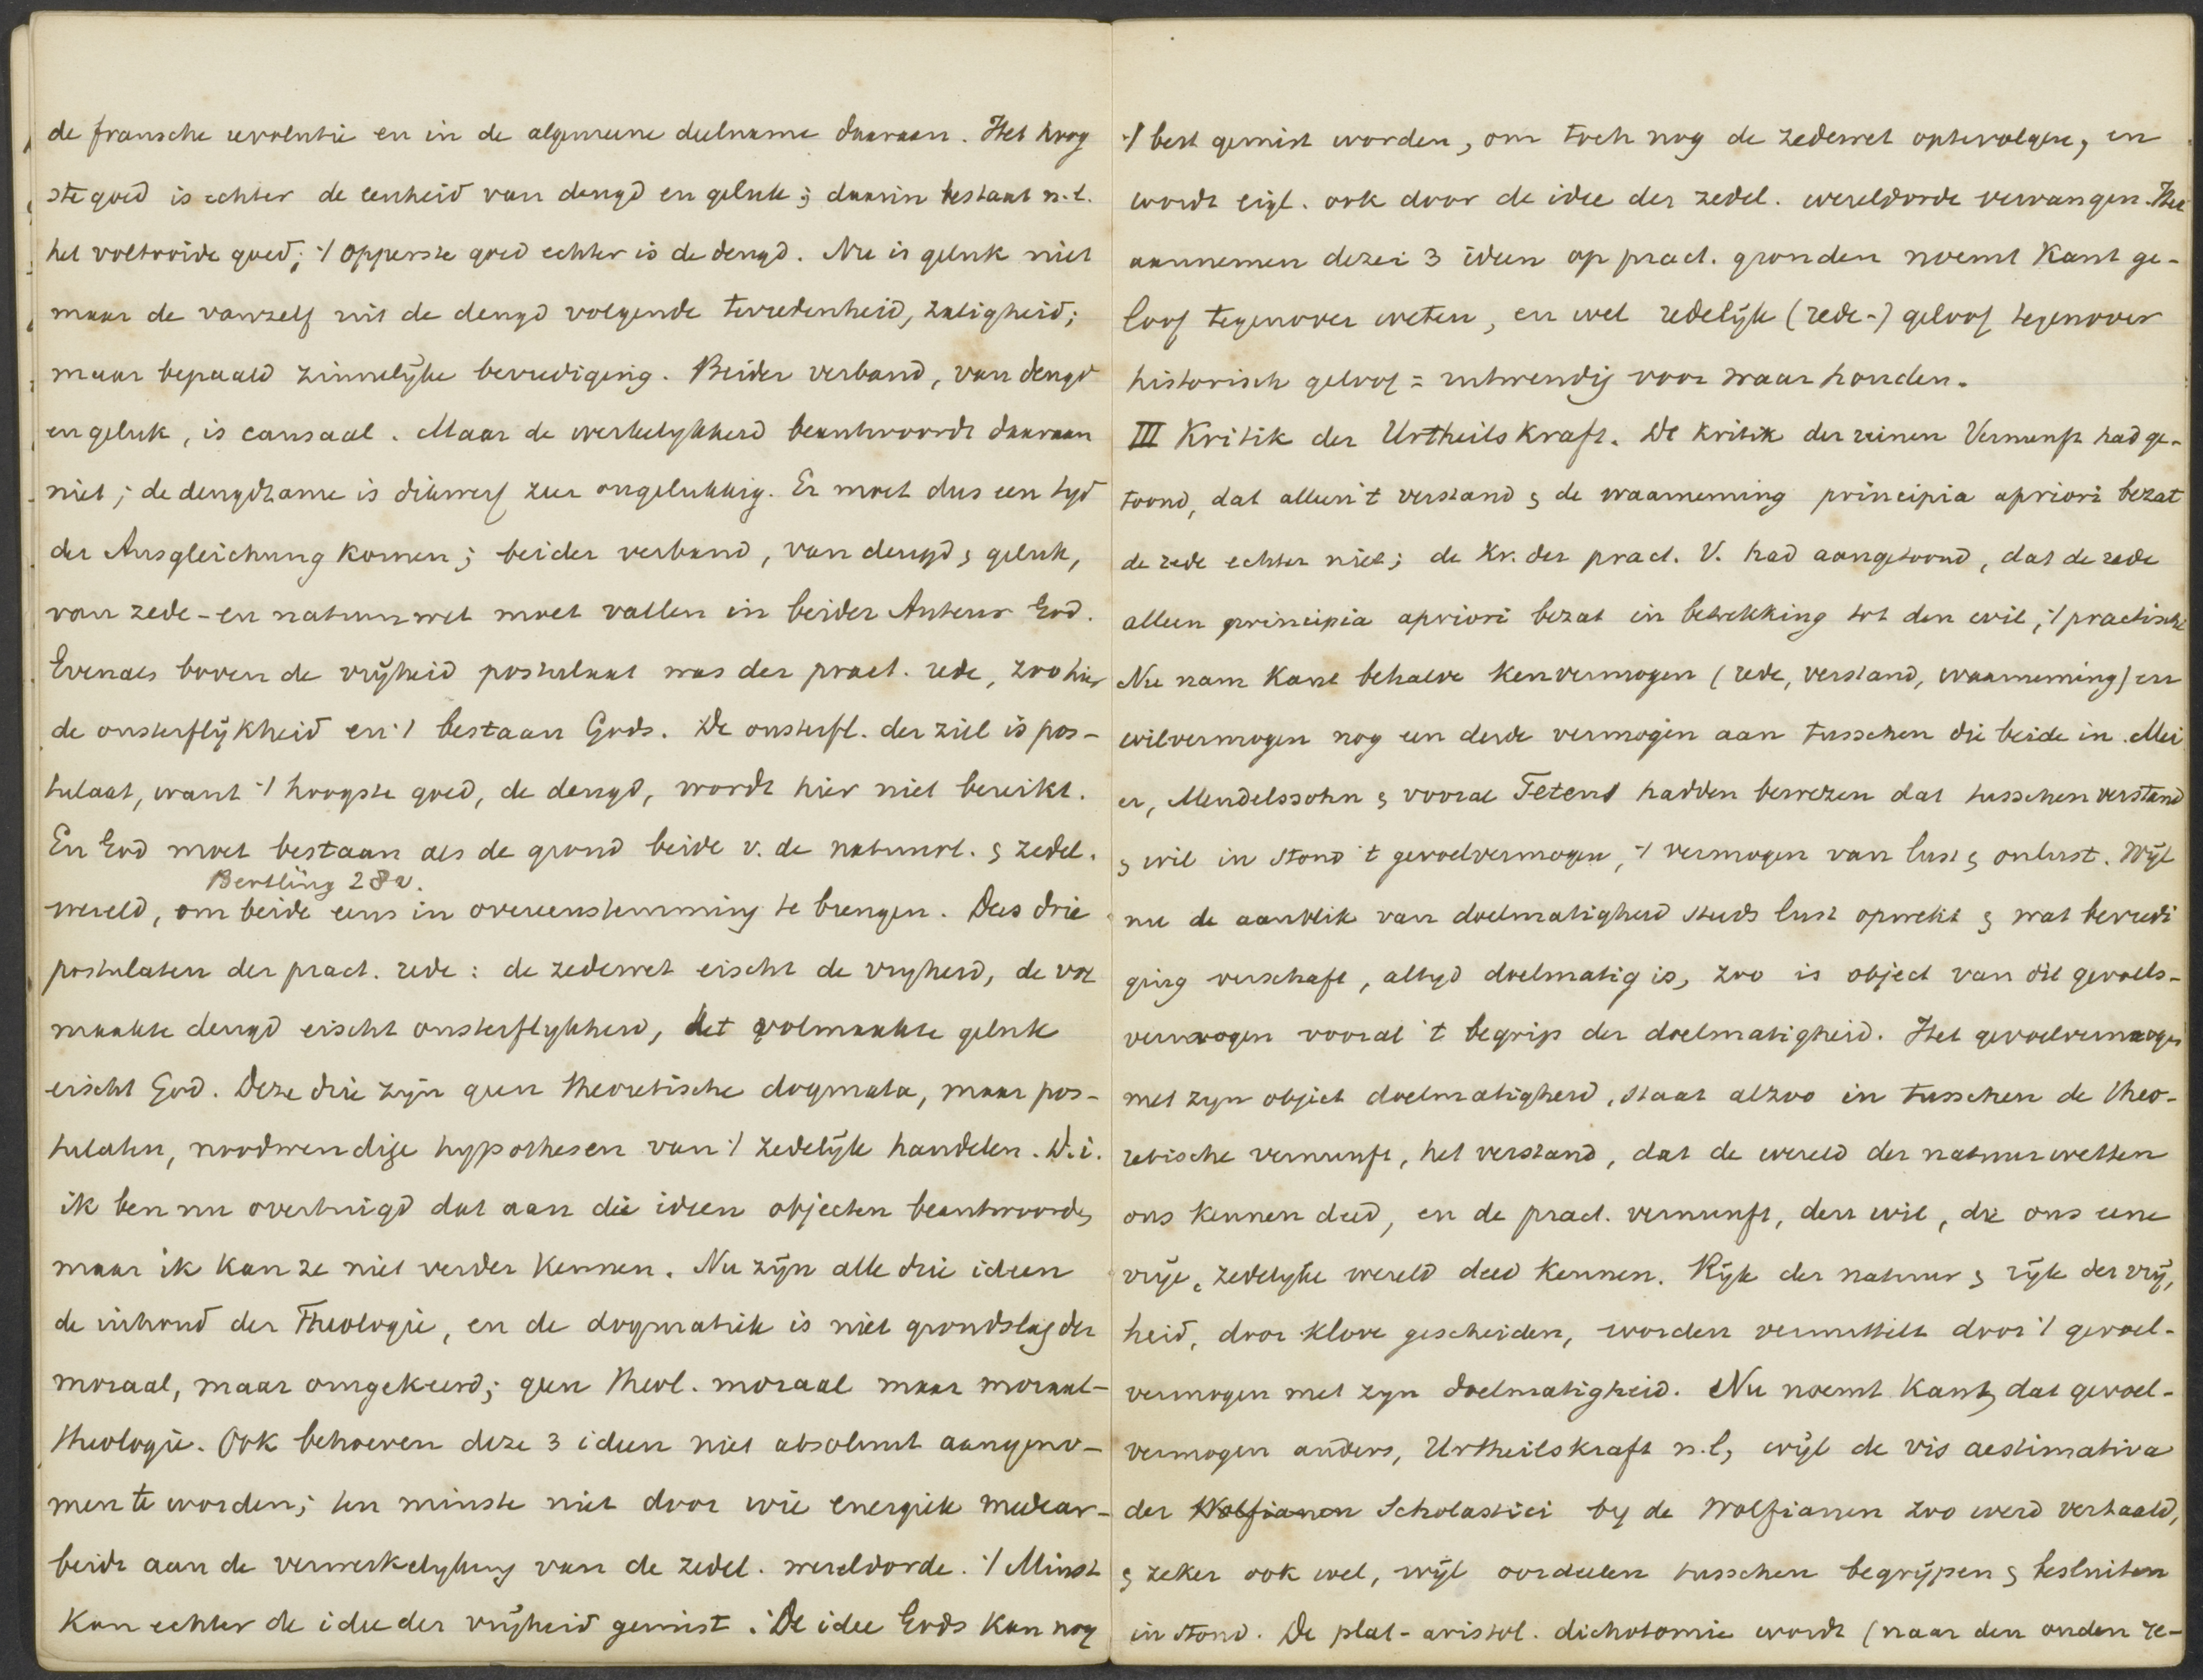 de fransche revolutie en in de algemeene deelname daaraan. Het hoog
ste goed is echter de eenheid van deugd en geluk; daarin bestaat n.l.
het voltooide goed; 't opperste goed echter is de deugd. Nu is geluk niet
maar de vanzelf uit de deugd volgende tevredenheid, zaligheid;
maar bepaald zinnelijke bevrediging. Beider verband, van deugd
en geluk, is causaal. Maar de werkelykheid beantwoordt daaraan
niet; de deugdzame is dikwerf zeer ongelukkig. Er moet dus een tyd
der Ausgleichung komen; beider verband, van deugd & geluk,
van zede- en natuurwet moet vallen in beider Auteur God.
Evenals boven de vrijheid postulaat was der pract. rede, zoo hier
de onsterflijkheid en 't bestaan Gods. De onsterfl. der ziel is pos-
tulaat, want 't hoogste goed, de deugd, wordt hier niet bereikt.
En God moet bestaan als de grond beide v. de natuurl. & zedel.
Bertling 28v.
wereld, om beide eens in overeenstemming te brengen. Dus drie
postulaten der pract. rede: de zedewet eischt de vryheid, de vol
maakte deugd eischt onsterflykheid, het volmaakte geluk
eischt God. Deze drie zijn geen theoretische dogmata, maar pos-
tulaten, noodwendige hypothesen van 't zedelijk handelen. D.i.
ik ben nu overtuigd dat aan die ideen objecten beantwoorden,
maar ik kan ze niet verder kennen. Nu zijn alle drie ideen
de inhoud der Theologie, en de dogmatiek is niet grondslag der
moraal, maar omgekeerd; geen theol. moraal maar moraal-
theologie. Ook behoeven deze 3 ideen niet absoluut aangeno-
men te worden; ten minste niet door wie energiek medear-
beidt aan de verwerkelyking van de zedel. wereldorde. 't Minst
kan echter de idee der vrijheid gemist. De idee Gods kan nog
't best gemist worden, om toch nog de zedewet optevolgen, en
wordt eigl. ook door de idee der zedel. wereldorde vervangen. Het
aannemen dezer 3 ideen op pract. gronden noemt Kant ge-
loof tegenover weten, en wel redelijk (rede-) geloof tegenover
historisch geloof = uitwendig voor waar houden.
III Kritik der Urtheilskraft. De Kritik der reinen Vernunft had ge-
toond, dat alleen 't verstand & de waarneming principia apriori bezat
de rede echter niet; de Kr. der pract. V. had aangetoond, dat de rede
alleen principia apriori bezat in betrekking tot den wil, 't practische
Nu nam Kant behalve kenvermogen (rede, verstand, waarneming) en
wilvermogen nog een derde vermogen aan tusschen die beide in. Mei
er, Mendelssohn & vooral Tetens hadden bewezen dat tusschen verstand
& wil in stond 't gevoelvermogen, 't vermogen van lust & onlust. Wijl
nu de aanblik van doelmatigheid steeds lust opwekt & wat bevredi
ging verschaft, altyd doelmatig is, zoo is object van dit gevoels-
vermogen vooral 't begrip der doelmatigheid. Het gevoelvermogen
met zyn object doelmatigheid, staat alzoo in tusschen de theo-
retische vernunft, het verstand, dat de wereld der natuurwetten
ons kennen deed, en de pract. vernunft, den wil, die ons eene
vrije, zedelyke wereld deed kennen. Rijk der natuur & rijk der vrij,
heid, door klove gescheiden, worden vermittelt door 't gevoel-
vermogen met zyn doelmatigheid. Nu noemt Kant, dat gevoel-
vermogen anders, Urtheilskraft n.l, wijl de vis aestimativa
der Wolfianen Scholastici by de Wolfianen zoo werd vertaald,
& zeker ook wel, wijl oordeelen tusschen begrijpen & besluiten
in stond. De plat-aristot. dichotomie wordt (naar den ouden re-